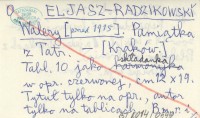 ELJASZ-RADZIKOWSKI
Walery [przed 1905]. Pamiątka
z Tatr. — [Kraków.]
składanka
Tabl. 10 jako harmonijka
w opr. czerwonej, cm 12 x 19.
Tytuł tylko na opr., autor
tylko na tablicach.